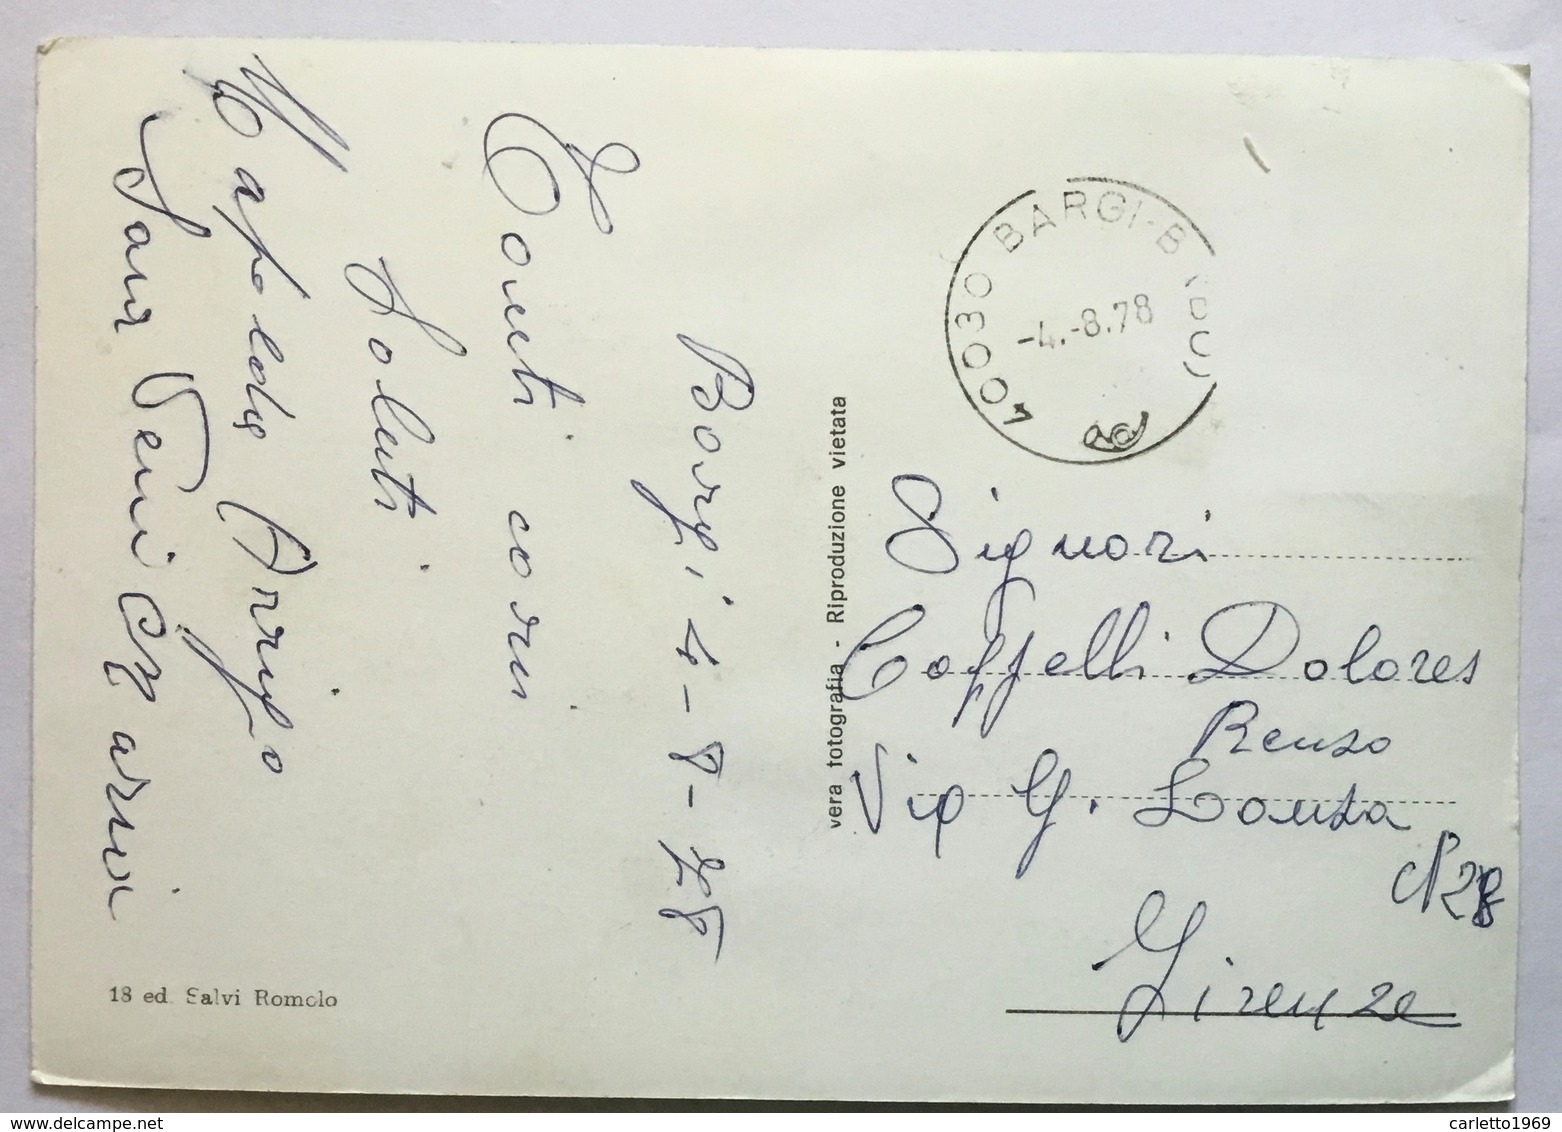 Bargi 4-8-78
Tanti cari
Saluti
Arrigo
18 ed. Salvi Romolo
vera fotografia - Riproduzione vietata
40030 BARGI-B
-4.-8.78
Signori
Coppelli Dolores
Renzo
Via G. Lanza
N 28
Firenze
www.delcampe.net
carletto1969